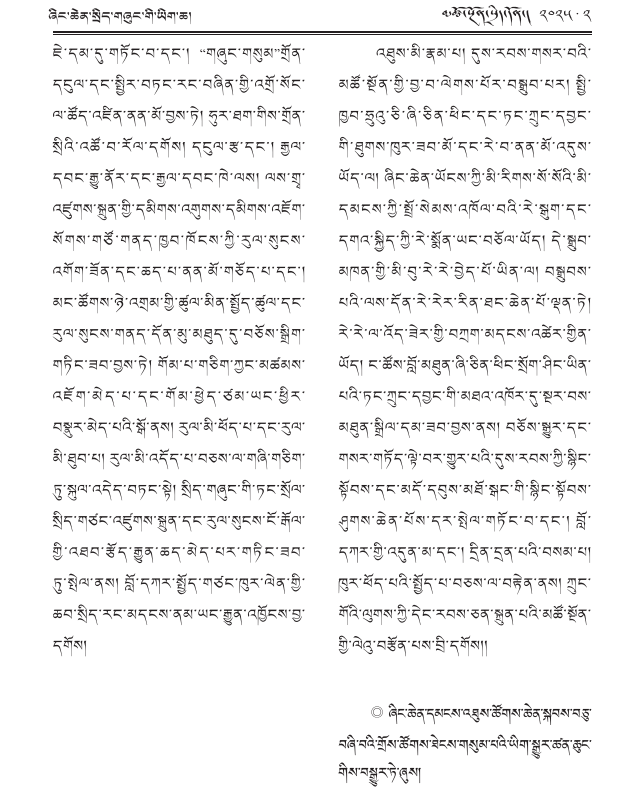 ཞིང་ཆེན་སྲིད་གཞུང་གི་ཡིག་ཆ།
༢༠༢༥ · ༢
ཇེ་དམ་དུ་གཏོང་བ་དང་། “གཞུང་གསུམ”གྲོན་
དངུལ་དང་སྤྱིར་བཏང་རང་བཞིན་གྱི་འགྲོ་སོང་
ལ་ཚོད་འཛིན་ནན་མོ་བྱས་ཏེ། ཧུར་ཐག་གིས་གྲོན་
སྲིའི་འཚོ་བ་རོལ་དགོས། དངུལ་རྩ་དང་། རྒྱལ་
དབང་རྒྱུ་ནོར་དང་རྒྱལ་དབང་ཁེ་ལས། ལས་གྲྭ་
འཛུགས་སྐྲུན་གྱི་དམིགས་འགུགས་དམིགས་འཛོག་
སོགས་གཙོ་གནད་ཁྱབ་ཁོངས་ཀྱི་རུལ་སུངས་
འགོག་ཟོན་དང་ཆད་པ་ནན་མོ་གཅོད་པ་དང་།
མང་ཚོགས་ཉེ་འགྲམ་གྱི་ཚུལ་མིན་སྤྱོད་ཚུལ་དང་
རུལ་སུངས་གནད་དོན་མུ་མཐུད་དུ་བཅོས་སྒྲིག་
གཏིང་ཟབ་བྱས་ཏེ། གོམ་པ་གཅིག་ཀྱང་མཚམས་
འཇོག་མེད་པ་དང་གོམ་ཕྱེད་ཙམ་ཡང་ཕྱིར་
བསྣུར་མེད་པའི་སྒོ་ནས། རུལ་མི་ཕོད་པ་དང་རུལ་
མི་ཐུབ་པ། རུལ་མི་འདོད་པ་བཅས་ལ་གཞི་གཅིག་
ཏུ་སྐུལ་འདེད་བཏང་སྟེ། སྲིད་གཞུང་གི་ཏང་སྲོལ་
སྲིད་གཙང་འཛུགས་སྐྲུན་དང་རུལ་སུངས་ངོ་རྒོལ་
གྱི་འཐབ་རྩོད་རྒྱུན་ཆད་མེད་པར་གཏིང་ཟབ་
ཏུ་སྤེལ་ནས། བློ་དཀར་སྤྱོད་གཙང་ཁུར་ལེན་གྱི་
ཆབ་སྲིད་རང་མདངས་ནམ་ཡང་རྒྱུན་འཁྱོངས་བྱ་
དགོས།
འཐུས་མི་རྣམ་པ། དུས་རབས་གསར་བའི་
མཚོ་སྔོན་གྱི་བྱ་བ་ལེགས་པོར་བསྒྲུབ་པར། སྤྱི་
ཁྱབ་ཧྲུའུ་ཅི་ཞི་ཅིན་ཕིང་དང་ཏང་ཀྲུང་དབྱང་
གི་ཐུགས་ཁུར་ཟབ་མོ་དང་རེ་བ་ནན་མོ་འདུས་
ཡོད་ལ། ཞིང་ཆེན་ཡོངས་ཀྱི་མི་རིགས་སོ་སོའི་མི་
དམངས་ཀྱི་སྤྲོ་སེམས་འཁོལ་བའི་རེ་སྒུག་དང་
དགའ་སྐྱིད་ཀྱི་རེ་སྨོན་ཡང་བཅོལ་ཡོད། དེ་སྒྲུབ་
མཁན་གྱི་མི་བུ་རེ་རེ་བྱེད་པོ་ཡིན་ལ། བསྒྲུབས་
པའི་ལས་དོན་རེ་རེར་རིན་ཐང་ཆེན་པོ་ལྡན་ཏེ།
རེ་རེ་ལ་འོད་ཟེར་གྱི་བཀྲག་མདངས་འཚེར་གྱིན་
ཡོད། ང་ཚོས་བློ་མཐུན་ཞི་ཅིན་ཕིང་སྲོག་ཤིང་ཡིན་
པའི་ཏང་ཀྲུང་དབྱང་གི་མཐའ་འཁོར་དུ་སྔར་བས་
མཐུན་སྒྲིལ་དམ་ཟབ་བྱས་ནས། བཅོས་སྒྱུར་དང་
གསར་གཏོད་ལྟེ་བར་གྱུར་པའི་དུས་རབས་ཀྱི་སྙིང་
སྟོབས་དང་མདོ་དབུས་མཐོ་སྒང་གི་སྙིང་སྟོབས་
ཤུགས་ཆེན་པོས་དར་སྤེལ་གཏོང་བ་དང་། བློ་
དཀར་གྱི་འདུན་མ་དང་། དྲིན་དྲན་པའི་བསམ་པ།
ཁུར་ཕོད་པའི་སྤྱོད་པ་བཅས་ལ་བརྟེན་ནས། ཀྲུང་
གོའི་ལུགས་ཀྱི་དེང་རབས་ཅན་སྐྲུན་པའི་མཚོ་སྔོན་
གྱི་ལེའུ་བརྩོན་པས་བྲི་དགོས།།
◎ ཞིང་ཆེན་དམངས་འཐུས་ཚོགས་ཆེན་སྐབས་བཅུ་
བཞི་བའི་གྲོས་ཚོགས་ཐེངས་གསུམ་པའི་ཡིག་སྒྱུར་ཚན་ཆུང་
གིས་བསྒྱུར་ཏེ་ཞུས།